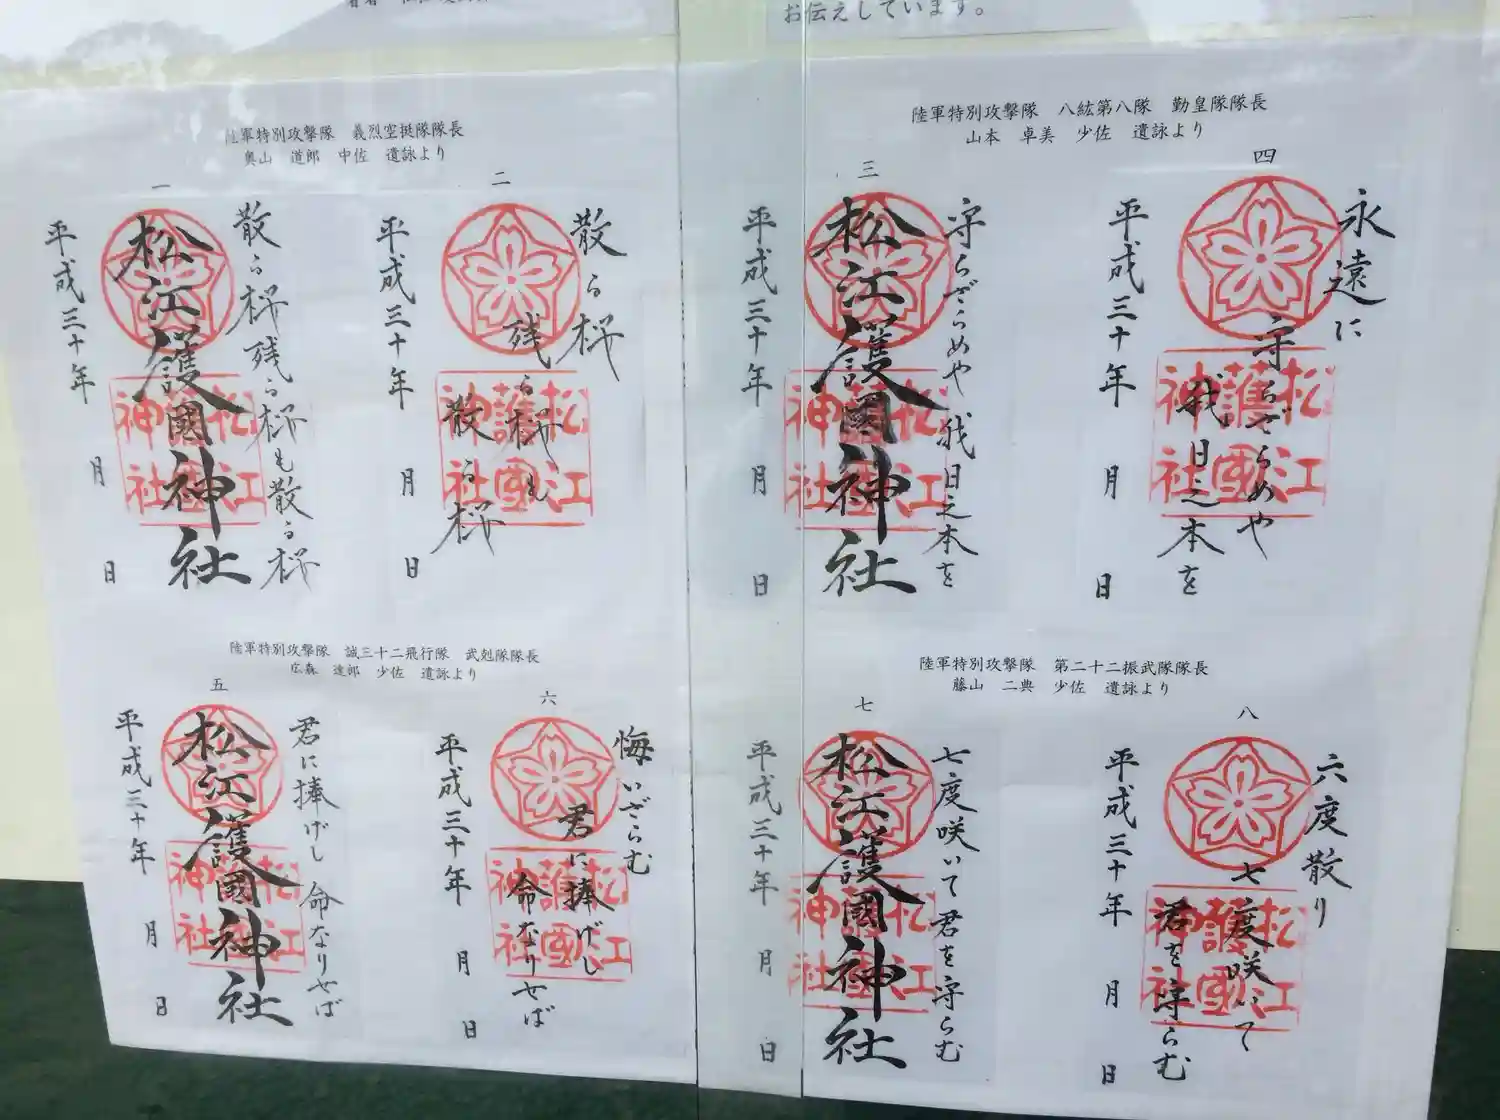 お伝えしています。
陸軍特別攻撃隊 義烈空挺隊隊長
奥山 道郎 中佐 遺詠より
一
散る桜残る桜も散る桜
松江護國神社
平成三十年 月 日
松江護國神社
二
散る桜
残る桜も
散る桜
平成三十年 月 日
松江護國神社
陸軍特別攻撃隊 八紘第八隊 勤皇隊隊長
山本 卓美 少佐 遺詠より
三
守らざらめや我日之本を
松江護國神社
平成三十年 月 日
松江護國神社
四
永遠に
守らざらめや
我日之本を
平成三十年 月 日
松江護國神社
陸軍特別攻撃隊 誠三十二飛行隊 武剋隊隊長
広森 達郎 少佐 遺詠より
五
君に捧げし命なりせば
松江護國神社
平成三十年 月 日
松江護國神社
六
悔いざらむ
君に捧げし
命なりせば
平成三十年 月 日
松江護國神社
陸軍特別攻撃隊 第二十二振武隊隊長
藤山 二典 少佐 遺詠より
七
七度咲いて君を守らむ
松江護國神社
平成三十年 月 日
松江護國神社
八
六度散り
七度咲いて
君を守らむ
平成三十年 月 日
松江護國神社